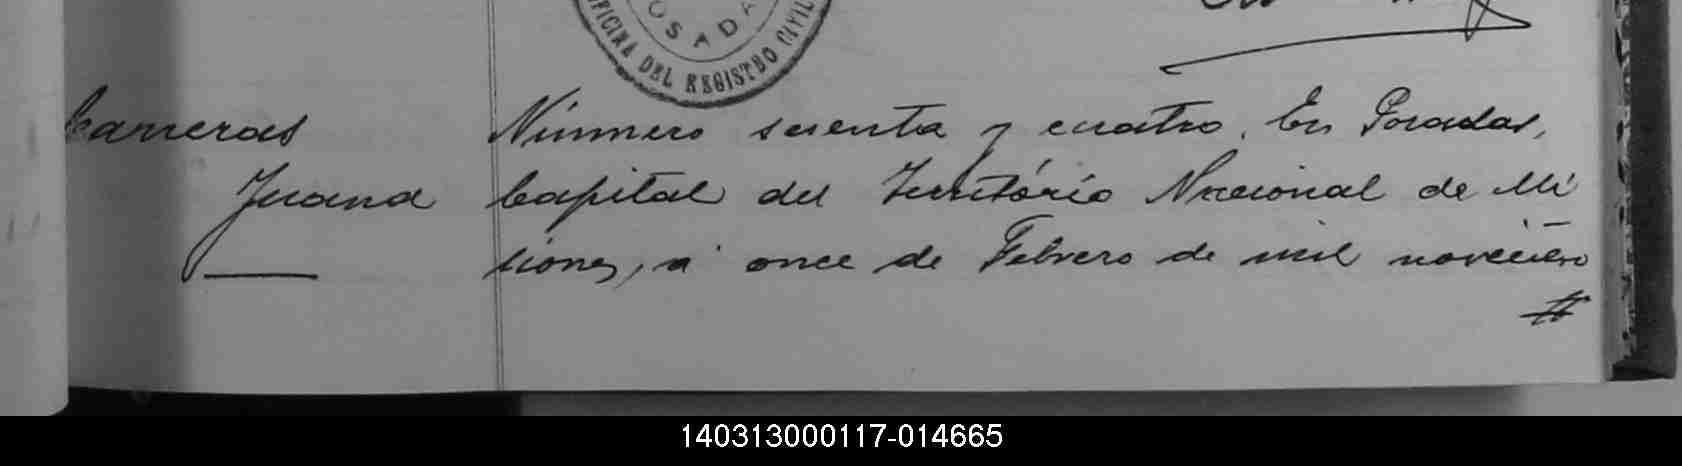 OSADA
OFICINA DEL REGISTRO CIVIL
Carreras Número sesenta y cuatro. En Posadas,
Juana Capital del Território Nacional de Mi
siones, a once de Febrero de mil novecien
#
140313000117-014665